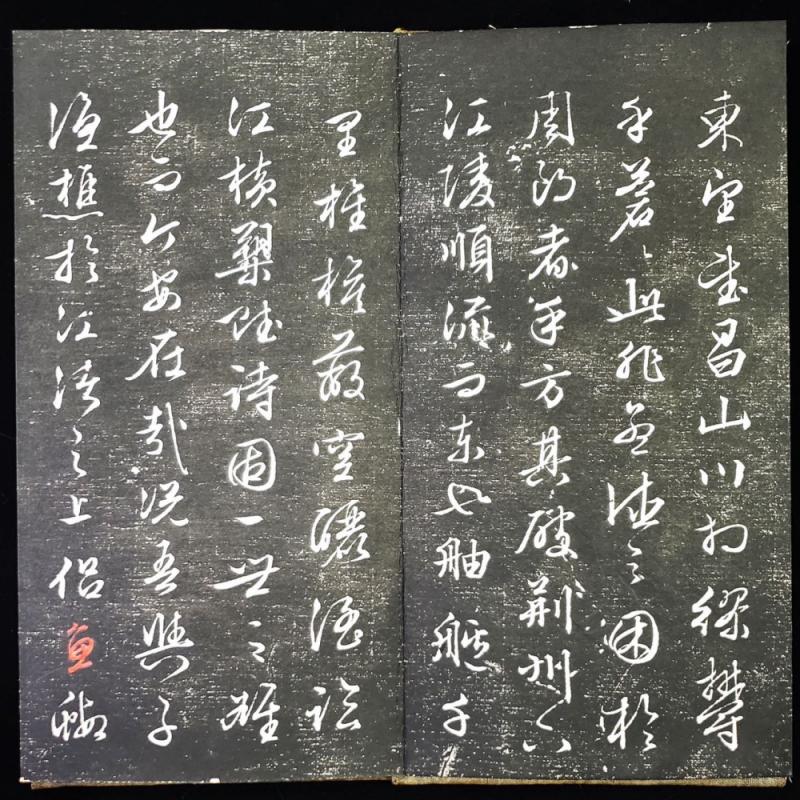 東望武昌山川相繆鬱
乎蒼〻此非孟德之困於
周郎者乎方其破荊州下
江陵順流而東也舳艫千
里旌旗蔽空釃酒臨
江橫槊賦詩固一世之雄
也而今安在哉況吾與子
漁樵於江渚之上侶魚蝦